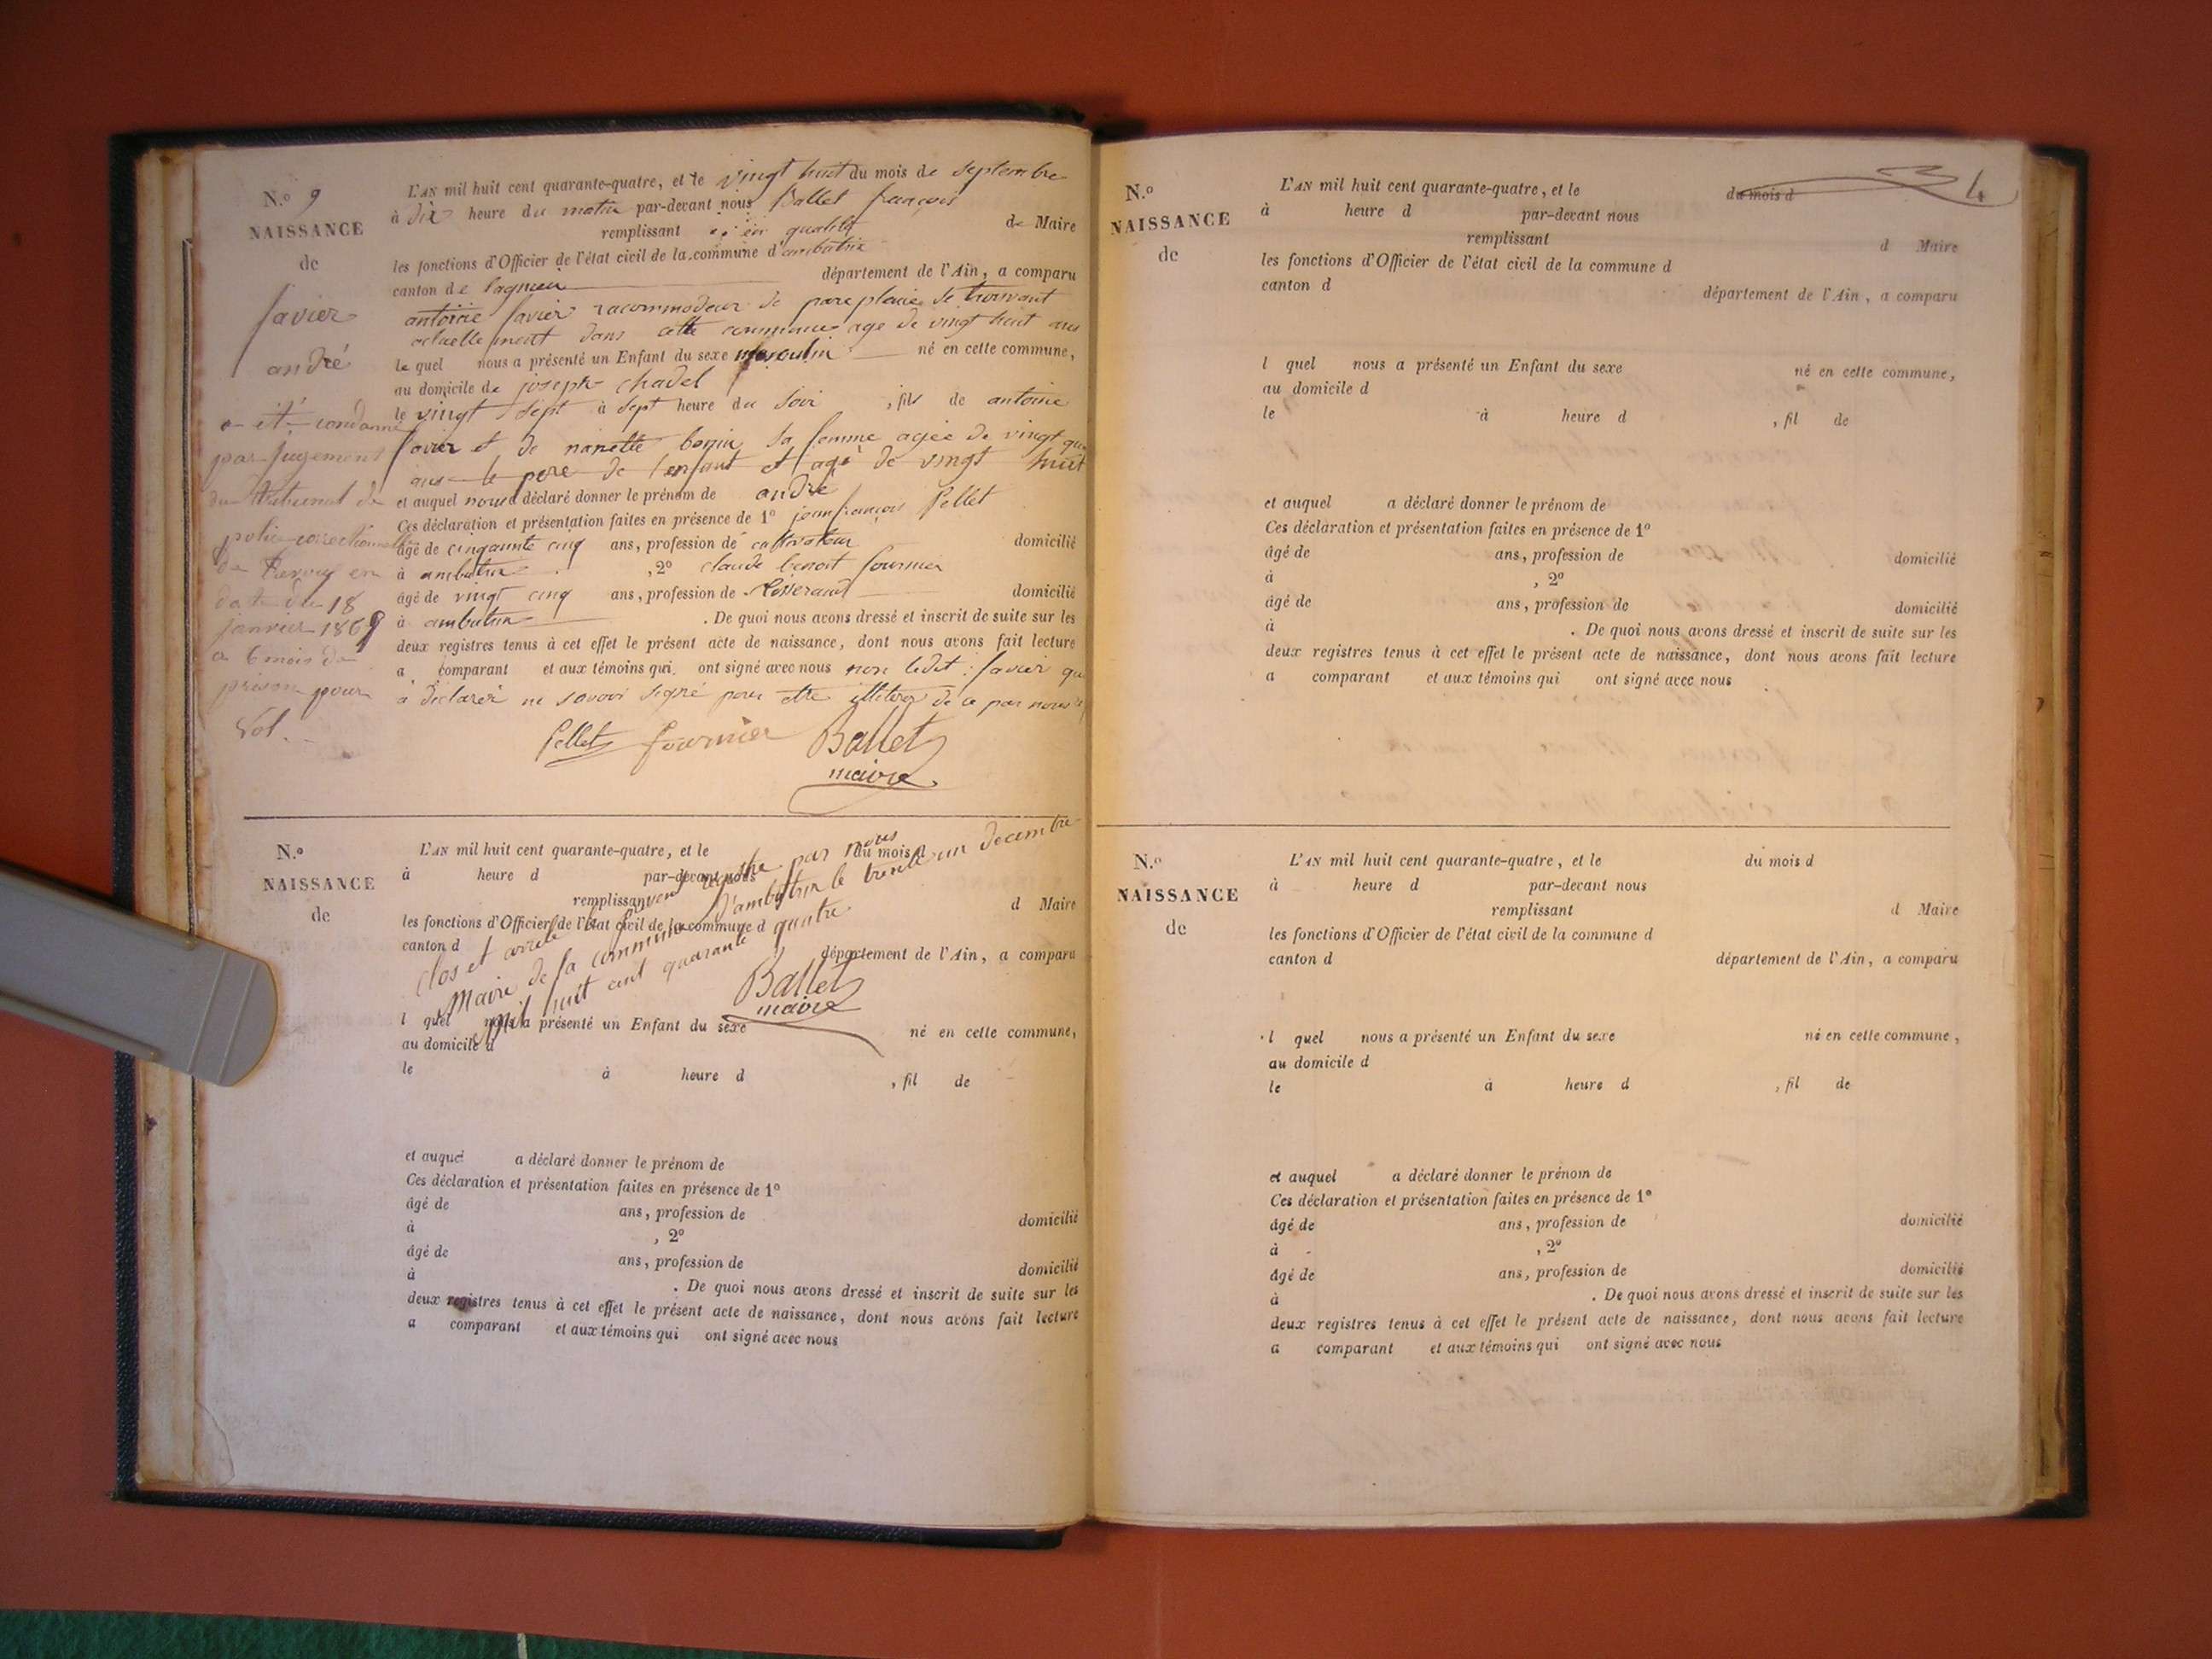 N.º 9
NAISSANCE
de
favier
andré
a été condamné
par jugement
du tribunal de
police correctionnelle
de en
date du 18
janvier 1869
a 6 mois de
prison pour
vol.
L'AN mil huit cent quarante-quatre, et le vingt huit du mois de septembre
à dix heure du matin par-devant nous Ballet françois
remplissant en qualité de Maire
les fonctions d'Officier de l'état civil de la commune d'ambutrix
canton de lagnieu département de l'Ain, a comparu
antoine favier racommodeur de pareplaie se trouvant
actuellement dans cette commune age de vingt huit ans
le quel nous a présenté un Enfant du sexe masculin né en cette commune,
au domicile de joseph chadel
le vingt sept à sept heure du soir, fils de antoine
favier et de nanette sa femme agée de vingt
ans le pere de l'enfant et agé de vingt huit
et auquel nous a déclaré donner le prénom de andré
Ces déclaration et présentation faites en présence de 1º jean françois Pellet
âgé de cinqannte cinq ans, profession de cultivateur domicilié
à ambutrix, 2º claude benoit fournier
âgé de vingt cinq ans, profession de tisserand domicilié
à ambutrix. De quoi nous avons dressé et inscrit de suite sur les
deux registres tenus à cet effet le présent acte de naissance, dont nous avons fait lecture
a comparant et aux témoins qui ont signé avec nous non ledit favier qui
a déclarer ne savoir signé pour etre de ce par nous
Pellet fournier Ballet
maire
N.º
NAISSANCE
de
L'AN mil huit cent quarante-quatre, et le du mois d
à heure d par-devant nous
remplissant d Maire
les fonctions d'Officier de l'état civil de la commune d
canton d département de l'Ain, a comparu
clos et arreté le present registre par nous
Maire de la commune d'ambutrix le trente un decembre
mil huit cent quarante quatre
Ballet
maire
l quel nous a présenté un Enfant du sexe né en cette commune,
au domicile d
le à heure d, fil de
et auquel a déclaré donner le prénom de
Ces déclaration et présentation faites en présence de 1º
âgé de ans, profession de domicilié
à, 2º
âgé de ans, profession de domicilié
à. De quoi nous avons dressé et inscrit de suite sur les
deux registres tenus à cet effet le présent acte de naissance, dont nous avons fait lecture
a comparant et aux témoins qui ont signé avec nous
4
N.º
NAISSANCE
de
L'AN mil huit cent quarante-quatre, et le du mois d
à heure d par-devant nous
remplissant d Maire
les fonctions d'Officier de l'état civil de la commune d
canton d département de l'Ain, a comparu
l quel nous a présenté un Enfant du sexe né en cette commune,
au domicile d
le à heure d, fil de
et auquel a déclaré donner le prénom de
Ces déclaration et présentation faites en présence de 1º
âgé de ans, profession de domicilié
à, 2º
âgé de ans, profession de domicilié
à. De quoi nous avons dressé et inscrit de suite sur les
deux registres tenus à cet effet le présent acte de naissance, dont nous avons fait lecture
a comparant et aux témoins qui ont signé avec nous
N.º
NAISSANCE
de
L'AN mil huit cent quarante-quatre, et le du mois d
à heure d par-devant nous
remplissant d Maire
les fonctions d'Officier de l'état civil de la commune d
canton d département de l'Ain, a comparu
l quel nous a présenté un Enfant du sexe né en cette commune,
au domicile d
le à heure d, fil de
et auquel a déclaré donner le prénom de
Ces déclaration et présentation faites en présence de 1º
âgé de ans, profession de domicilié
à, 2º
âgé de ans, profession de domicilié
à. De quoi nous avons dressé et inscrit de suite sur les
deux registres tenus à cet effet le présent acte de naissance, dont nous avons fait lecture
a comparant et aux témoins qui ont signé avec nous